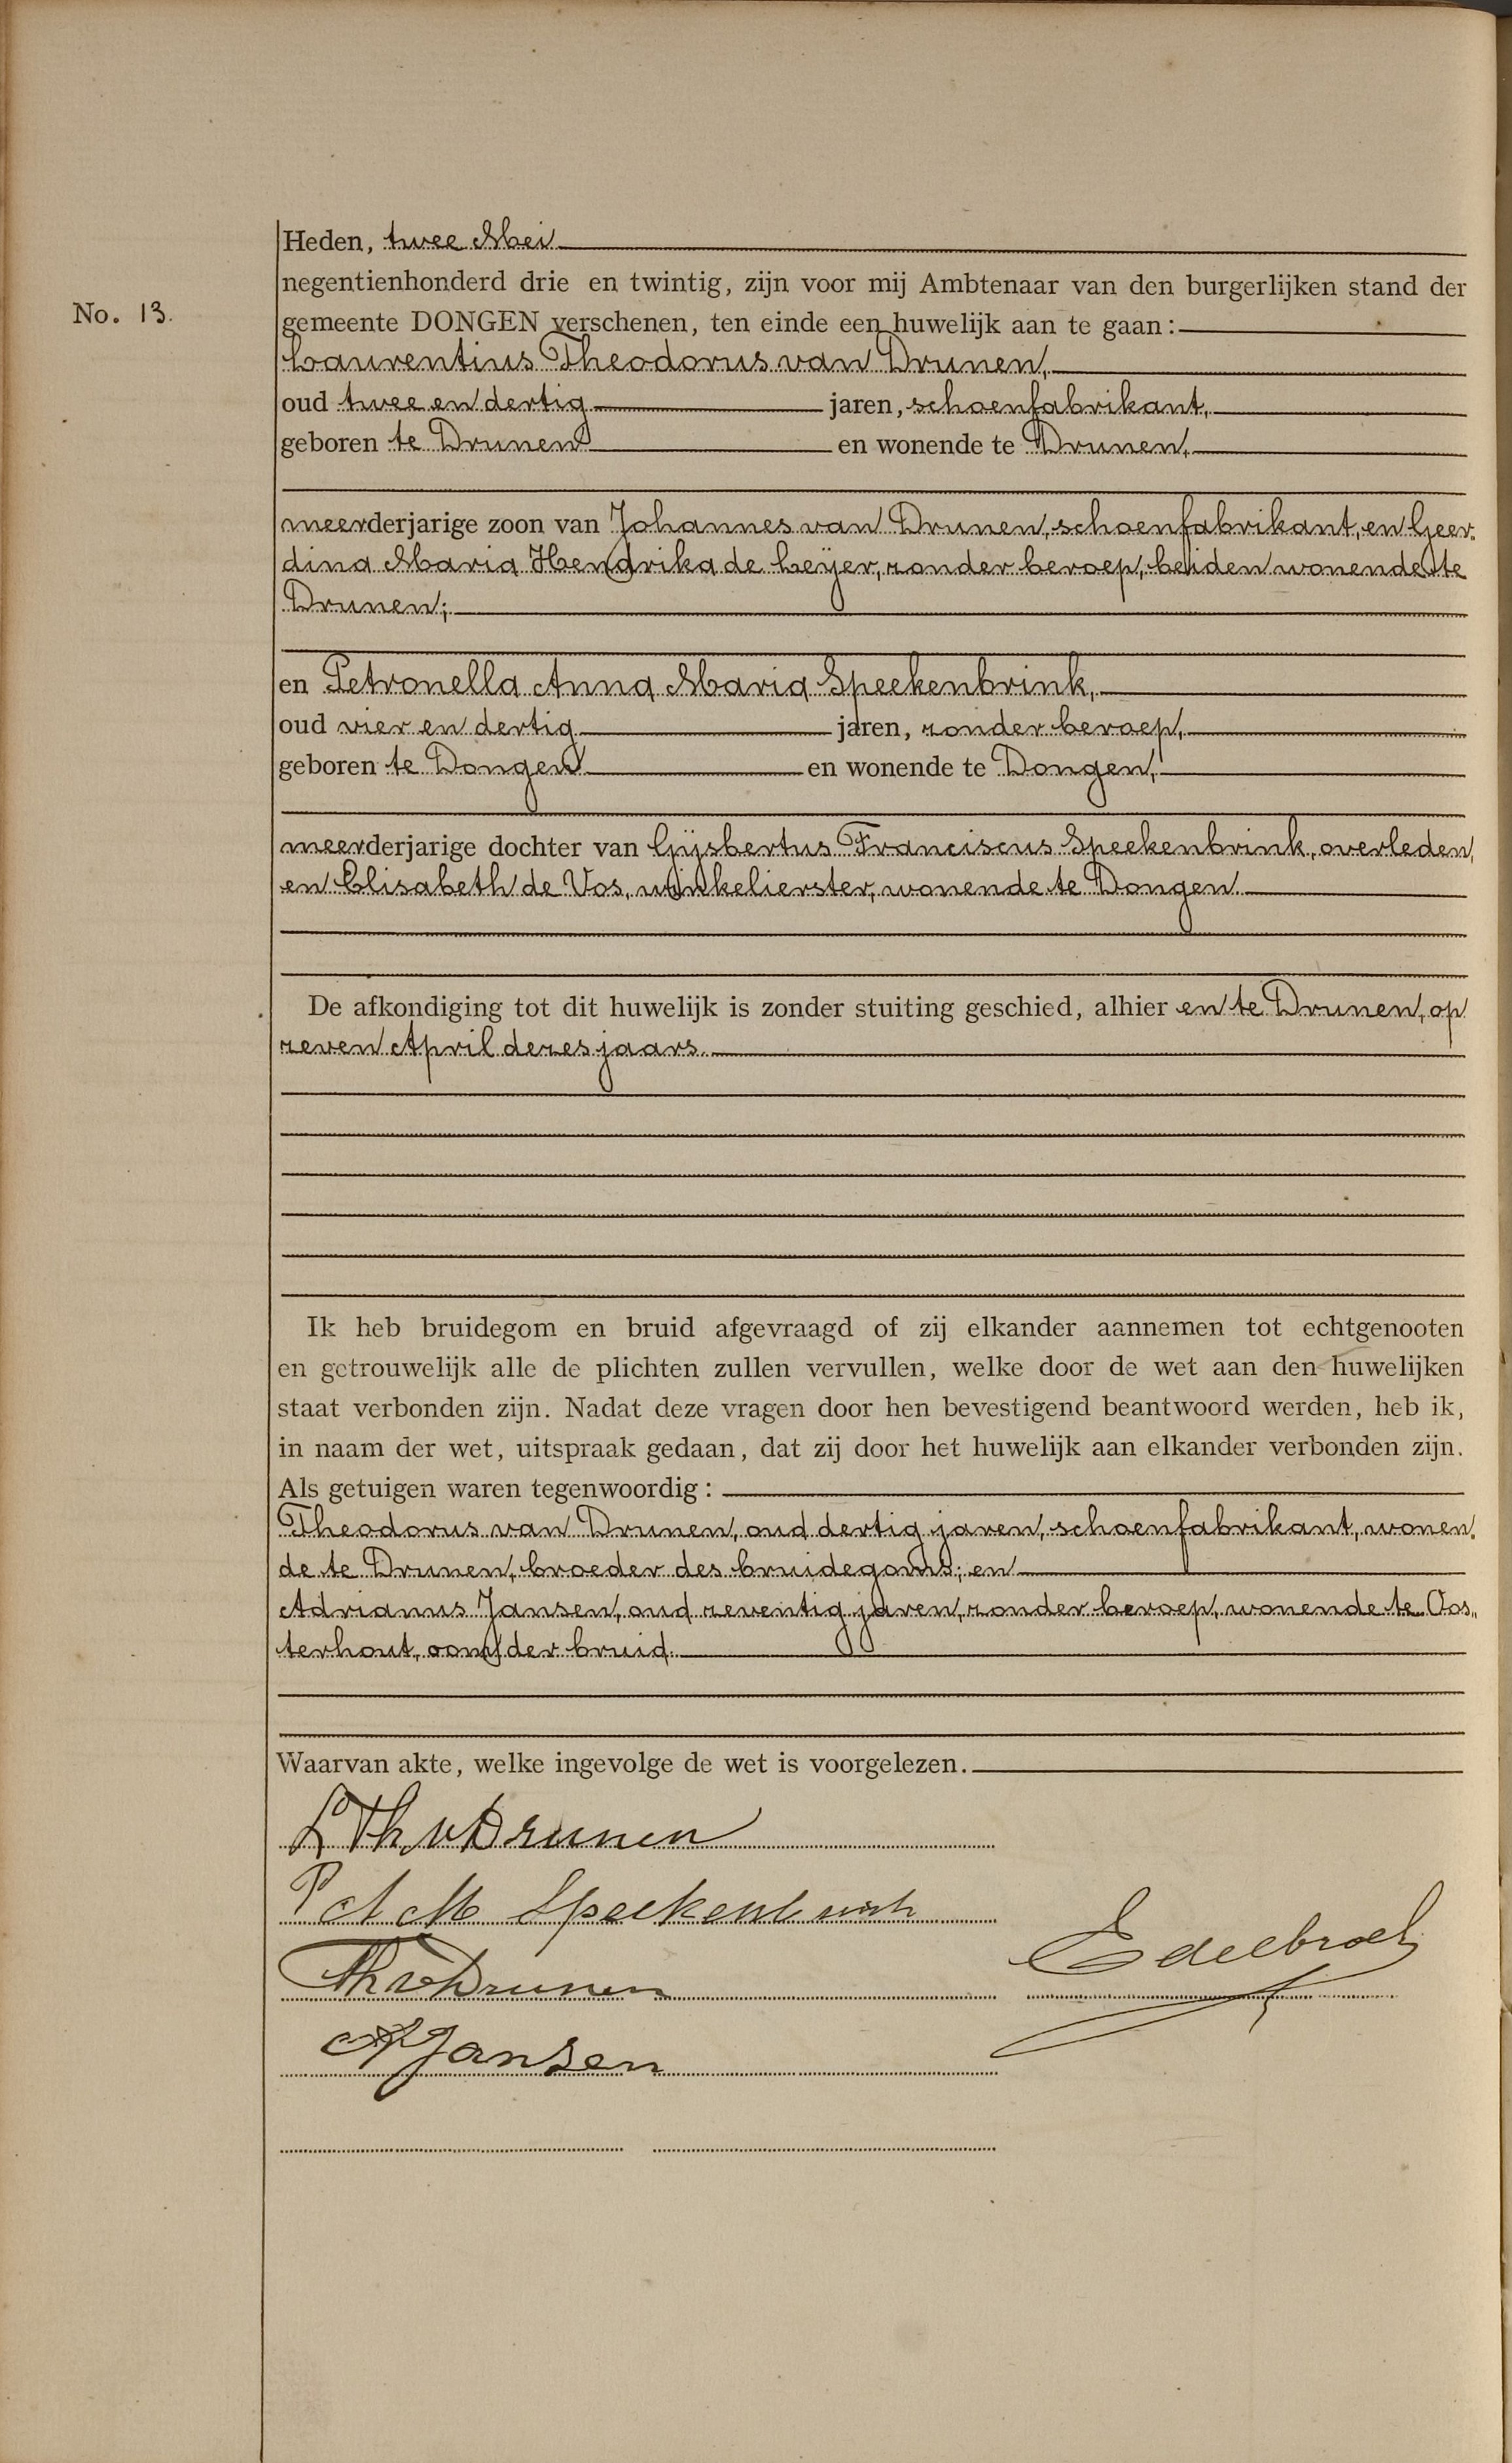 Heden, twee Mei
negentienhonderd drie en twintig, zijn voor mij Ambtenaar van den burgerlijken stand der
No. 13.
gemeente DONGEN verschenen, ten einde een huwelijk aan te gaan:
Laurentius Theodorus van Drunen,
oud twee en dertig jaren, schoenfabrikant,
geboren te Drunen en wonende te Drunen,
meerderjarige zoon van Johannes van Drunen, schoenfabrikant, en Geer„
dina Maria Hendrika de Leijer, zonder beroep, beiden wonende te
Drunen;
en Petronella Anna Maria Speekenbrink,
oud vier en dertig jaren, zonder beroep,
geboren te Dongen en wonende te Dongen,
meerderjarige dochter van Gijsbertus Franciscus Speekenbrink, overleden,
en Elisabeth de Vos, winkelierster, wonende te Dongen.
De afkondiging tot dit huwelijk is zonder stuiting geschied, alhier en te Drunen, op
zeven April dezes jaars.
Ik heb bruidegom en bruid afgevraagd of zij elkander aannemen tot echtgenooten
en getrouwelijk alle de plichten zullen vervullen, welke door de wet aan den huwelijken
staat verbonden zijn. Nadat deze vragen door hen bevestigend beantwoord werden, heb ik,
in naam der wet, uitspraak gedaan, dat zij door het huwelijk aan elkander verbonden zijn.
Als getuigen waren tegenwoordig:
Theodorus van Drunen, oud dertig jaren, schoenfabrikant, wonen„
de te Drunen, broeder des bruidegoms; en
Adrianus Jansen, oud zeventig jaren, zonder beroep, wonende te Oos„
terhout, oom der bruid.
Waarvan akte, welke ingevolge de wet is voorgelezen.
L Th v Drunen
P A M Speekenbrink
Th v Drunen
A Jansen